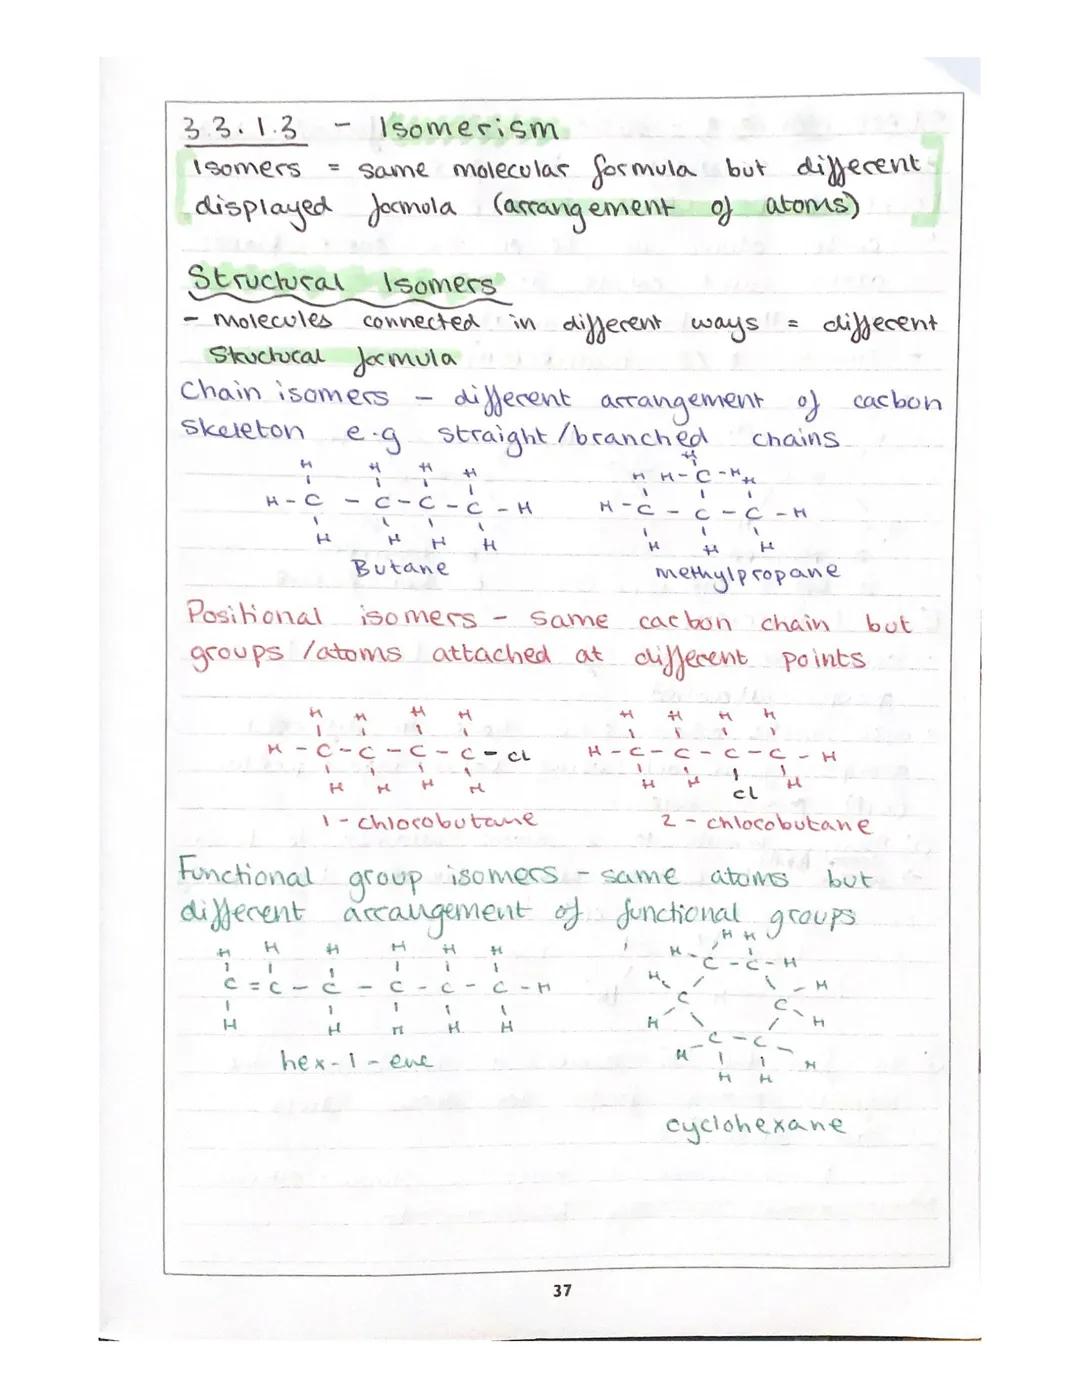 3.3.1.3 - Isomerism
Isomers = same molecular formula but different
displayed formula (arrangement of atoms)
Structural Isomers
- molecules connected in different ways = different
Structural formula
Chain isomers - different arrangement of carbon
skeleton e.g straight/branched chains
H
H H H H H H-C-H H
H-C-C-C-C-H H-C-C-C-H
H H H H H H H
Butane methylpropane
Positional isomers - same carbon chain but
groups/atoms attached at different points
H H H H H H H H
H-C-C-C-C-Cl H-C-C-C-C-H
H H H H H H Cl H
1-chlorobutane 2-chlorobutane
Functional group isomers - same atoms but
different arrangement of functional groups
H H H H H H H H H
C=C-C-C-C-C-H C-C-H
H H H H H H C C H
H H
H C-C H
H H
hex-1-ene
cyclohexane
37